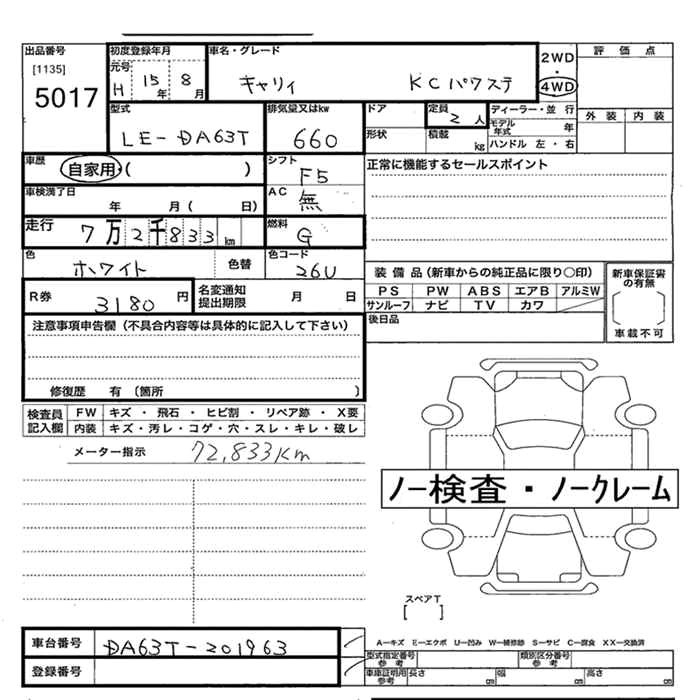 出品番号 初度登録年月 車名・グレード 2WD 評 価 点
[1135] 元号
5017 H 15年 8月 キャリィ KCパワステ 4WD
型式 排気量又はkw ドア 定員 2人 ディーラー・並 行 外 装 内 装
LE-DA63T 660 形状 積載 kg モデル年式 年
ハンドル 左・右
車歴 自家用・( ) シフト F5 正常に機能するセールスポイント
車検満了日 年 月( 日) AC 無
走行 7万2千833km 燃料 G
色 ホワイト 色替 色コード 26U
装 備 品(新車からの純正品に限り○印) 新車保証書の有無
R券 3180円 名変通知提出期限 月 日 PS PW ABS エアB アルミW
サンルーフ ナビ TV カワ 車載不可
注意事項申告欄(不具合内容等は具体的に記入して下さい) 後日品
修復歴 有〔箇所 〕
検査員記入欄 FW キズ ・ 飛石 ・ ヒビ割 ・ リペア跡 ・ X要
内装 キズ・汚レ・コゲ・穴・スレ・キレ・破レ
メーター指示 72,833Km
ノー検査・ノークレーム
スペアT
[ ]
車台番号 DA63T-201963 A-キズ E-エクボ U-凹み W-補修跡 S-サビ C-腐食 XX-交換済
型式指定番号 参考 類別区分番号 参考
登録番号 車庫証明用参考 長さ cm 幅 cm 高さ cm